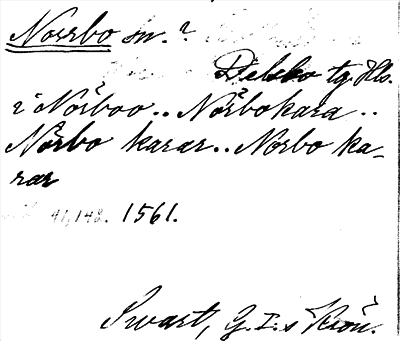 Norrbo sn.?
Delsbo tg. Hls.
i Norboo.. Norbokara..
Norbo karar.. Norbo ka-
rar
41,148. 1561.
Swart, G. I:s Krön.